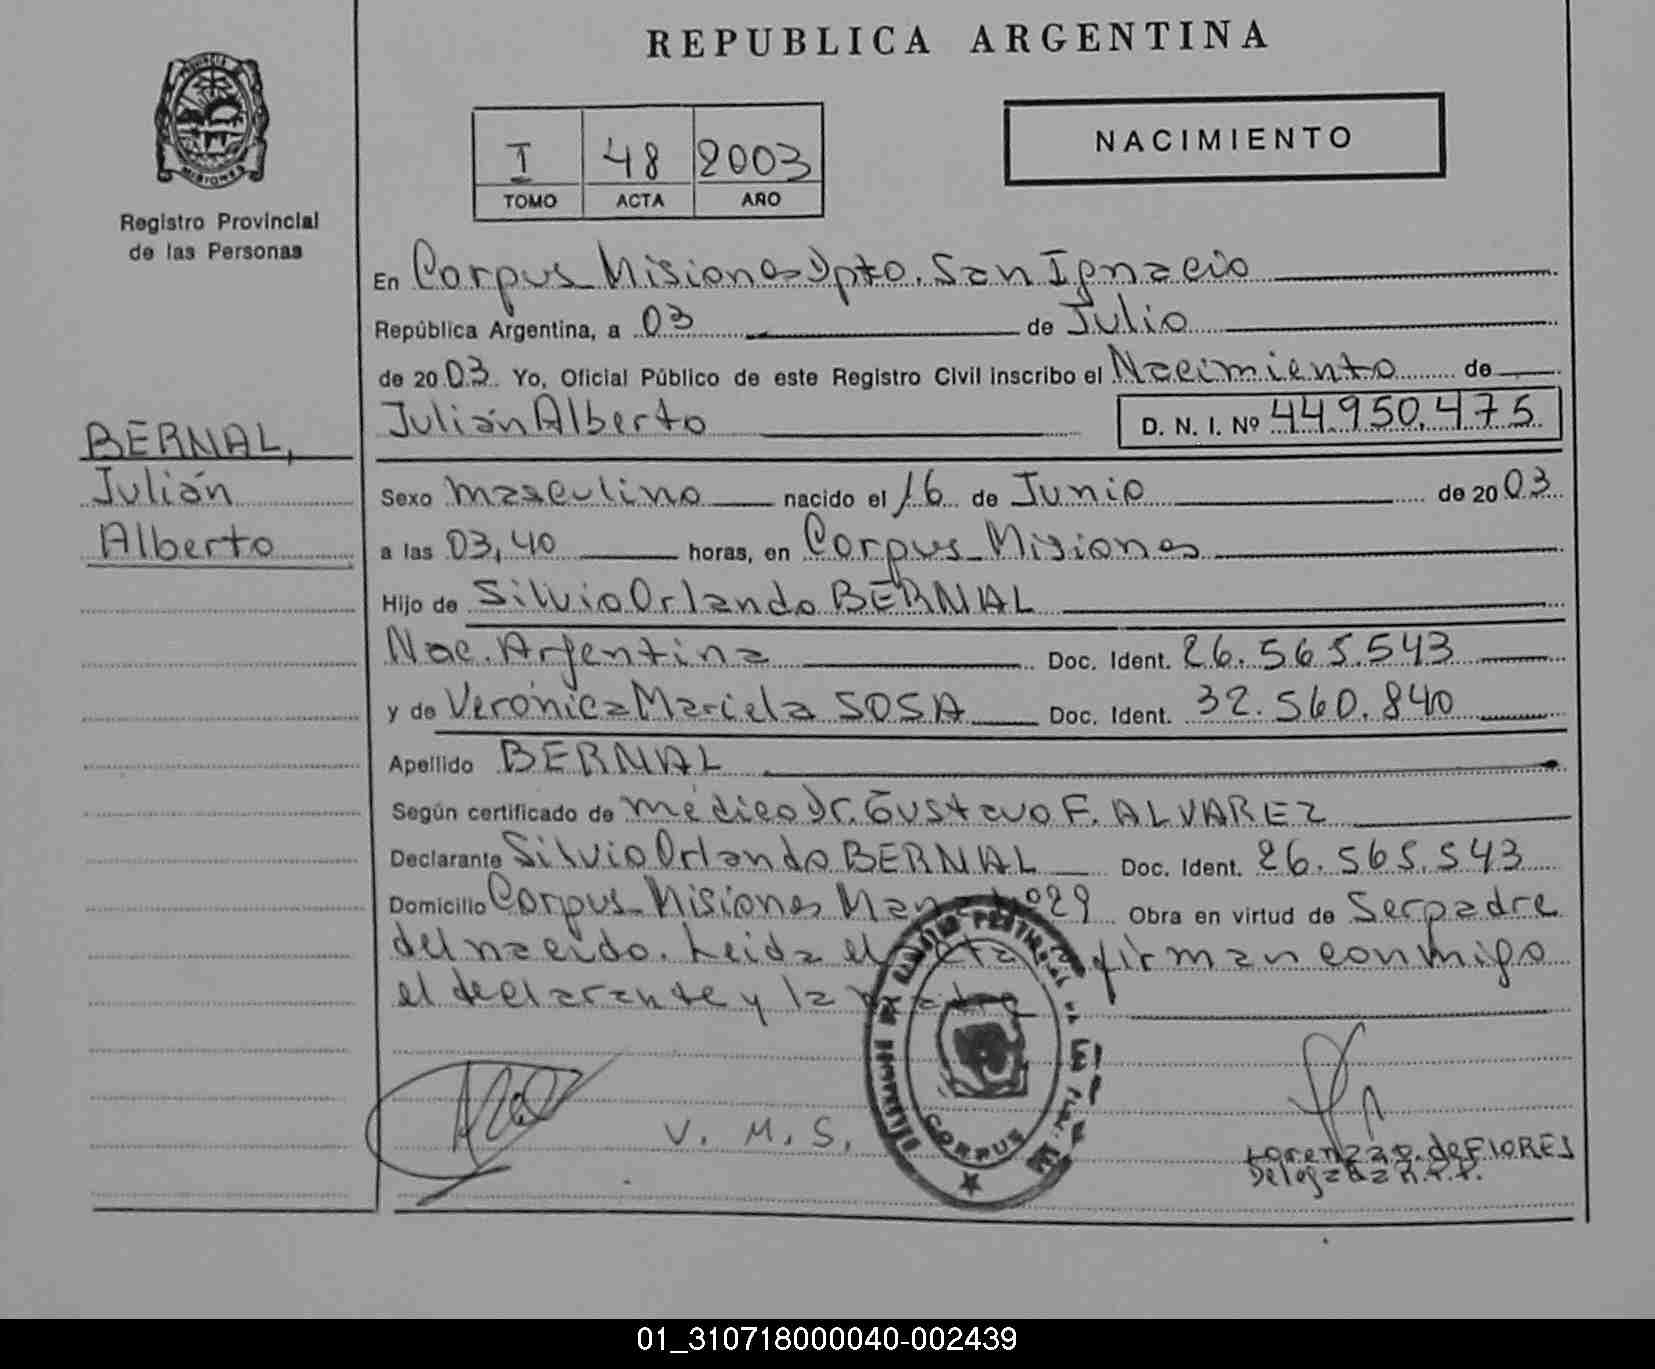 REPUBLICA ARGENTINA
PROVINCIA DE
MISIONES
Registro Provincial
de las Personas
I 48 2003
TOMO ACTA AÑO
NACIMIENTO
En Corpus Misiones Dpto. San Ignacio
República Argentina, a 03 de Julio
de 2003. Yo, Oficial Público de este Registro Civil inscribo el Nacimiento de
Julián Alberto D. N. I. Nº 44.950.475
BERNAL,
Julián
Alberto
Sexo masculino nacido el 16 de Junio de 2003
a las 03,40 horas, en Corpus Misiones
Hijo de Silvio Orlando BERNAL
Nac. Argentina Doc. Ident. 26.565.543
y de Verónica Mariela SOSA Doc. Ident. 32.560.840
Apellido BERNAL
Según certificado de médico Dr. Gustavo F. ALVAREZ
Declarante Silvio Orlando BERNAL Doc. Ident. 26.565.543
Domicilio Corpus Misiones Manz Nº 29 Obra en virtud de Ser padre
del nacido. Leida el acta firman conmigo
el declarante y la madre
V. M. S.
CORPUS
Lorenza de FLORES
Delegada R.P.P.
01_310718000040-002439